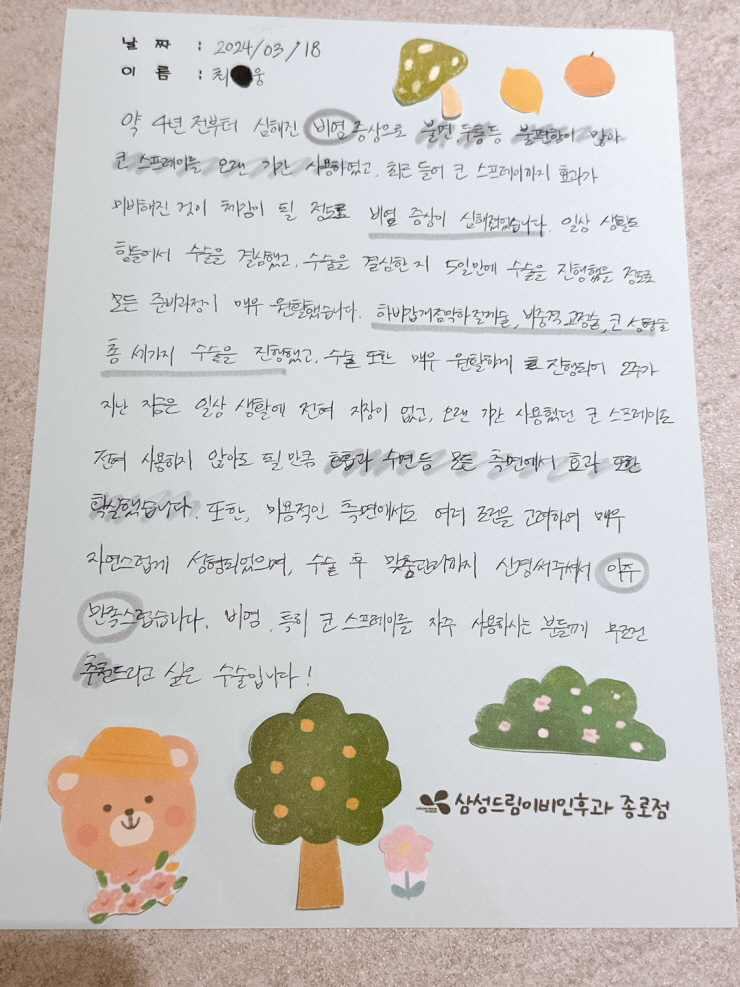 날 짜 : 2024/03/18
이 름 : 최 웅
약 4년 전부터 심해진 비염 증상으로 불면, 두통 등 불편함이 많아
코 스프레이를 오랜 기간 사용하였고, 최근 들어 코 스프레이까지 효과가
미비해진 것이 체감이 될 정도로 비염 증상이 심해졌었습니다. 일상 생활도
힘들어서 수술을 결심했고, 수술을 결심한 지 5일만에 수술을 진행했을 정도로
모든 준비과정이 매우 원활했습니다. 하비갑개점막하절제술, 비중격 교정술, 코 성형술
총 세가지 수술을 진행했고, 수술 또한 매우 원활하게 진행되어 2주가
지난 지금은 일상 생활에 전혀 지장이 없고, 오랜 기간 사용했던 코 스프레이도
전혀 사용하지 않아도 될 만큼 수면 등 모든 측면에서 효과 또한
확실했습니다. 또한, 미용적인 측면에서도 여러 조건을 고려하여 매우
자연스럽게 성형되었으며, 수술 후 맞춤관리까지 신경써주셔서 아주
만족스럽습니다. 비염, 특히 코 스프레이를 자주 사용하시는 분들께 무조건
추천드리고 싶은 수술입니다!
삼성드림이비인후과 종로점